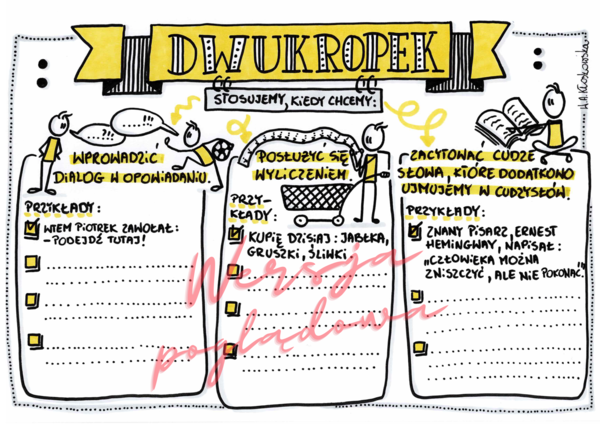 DWUKROPEK
STOSUJEMY, KIEDY CHCEMY:
WPROWADZIĆ
DIALOG W OPOWIADANIU.
PRZYKŁADY:
WTEM PIOTREK ZAWOŁAŁ:
- PODEJDŹ TUTAJ!
POSŁUŻYĆ SIĘ
WYLICZENIEM
PRZY-
KŁADY:
KUPIĘ DZISIAJ: JABŁKA,
GRUSZKI, ŚLIWKI
ZACYTOWAĆ CUDZE
SŁOWA, KTÓRE DODATKOWO
UJMUJEMY W CUDZYSŁÓW.
PRZYKŁADY:
ZNANY PISARZ, ERNEST
HEMINGWAY, NAPISAŁ:
„CZŁOWIEKA MOŻNA
ZNISZCZYĆ, ALE NIE POKONAĆ."
Wersja
poglądowa